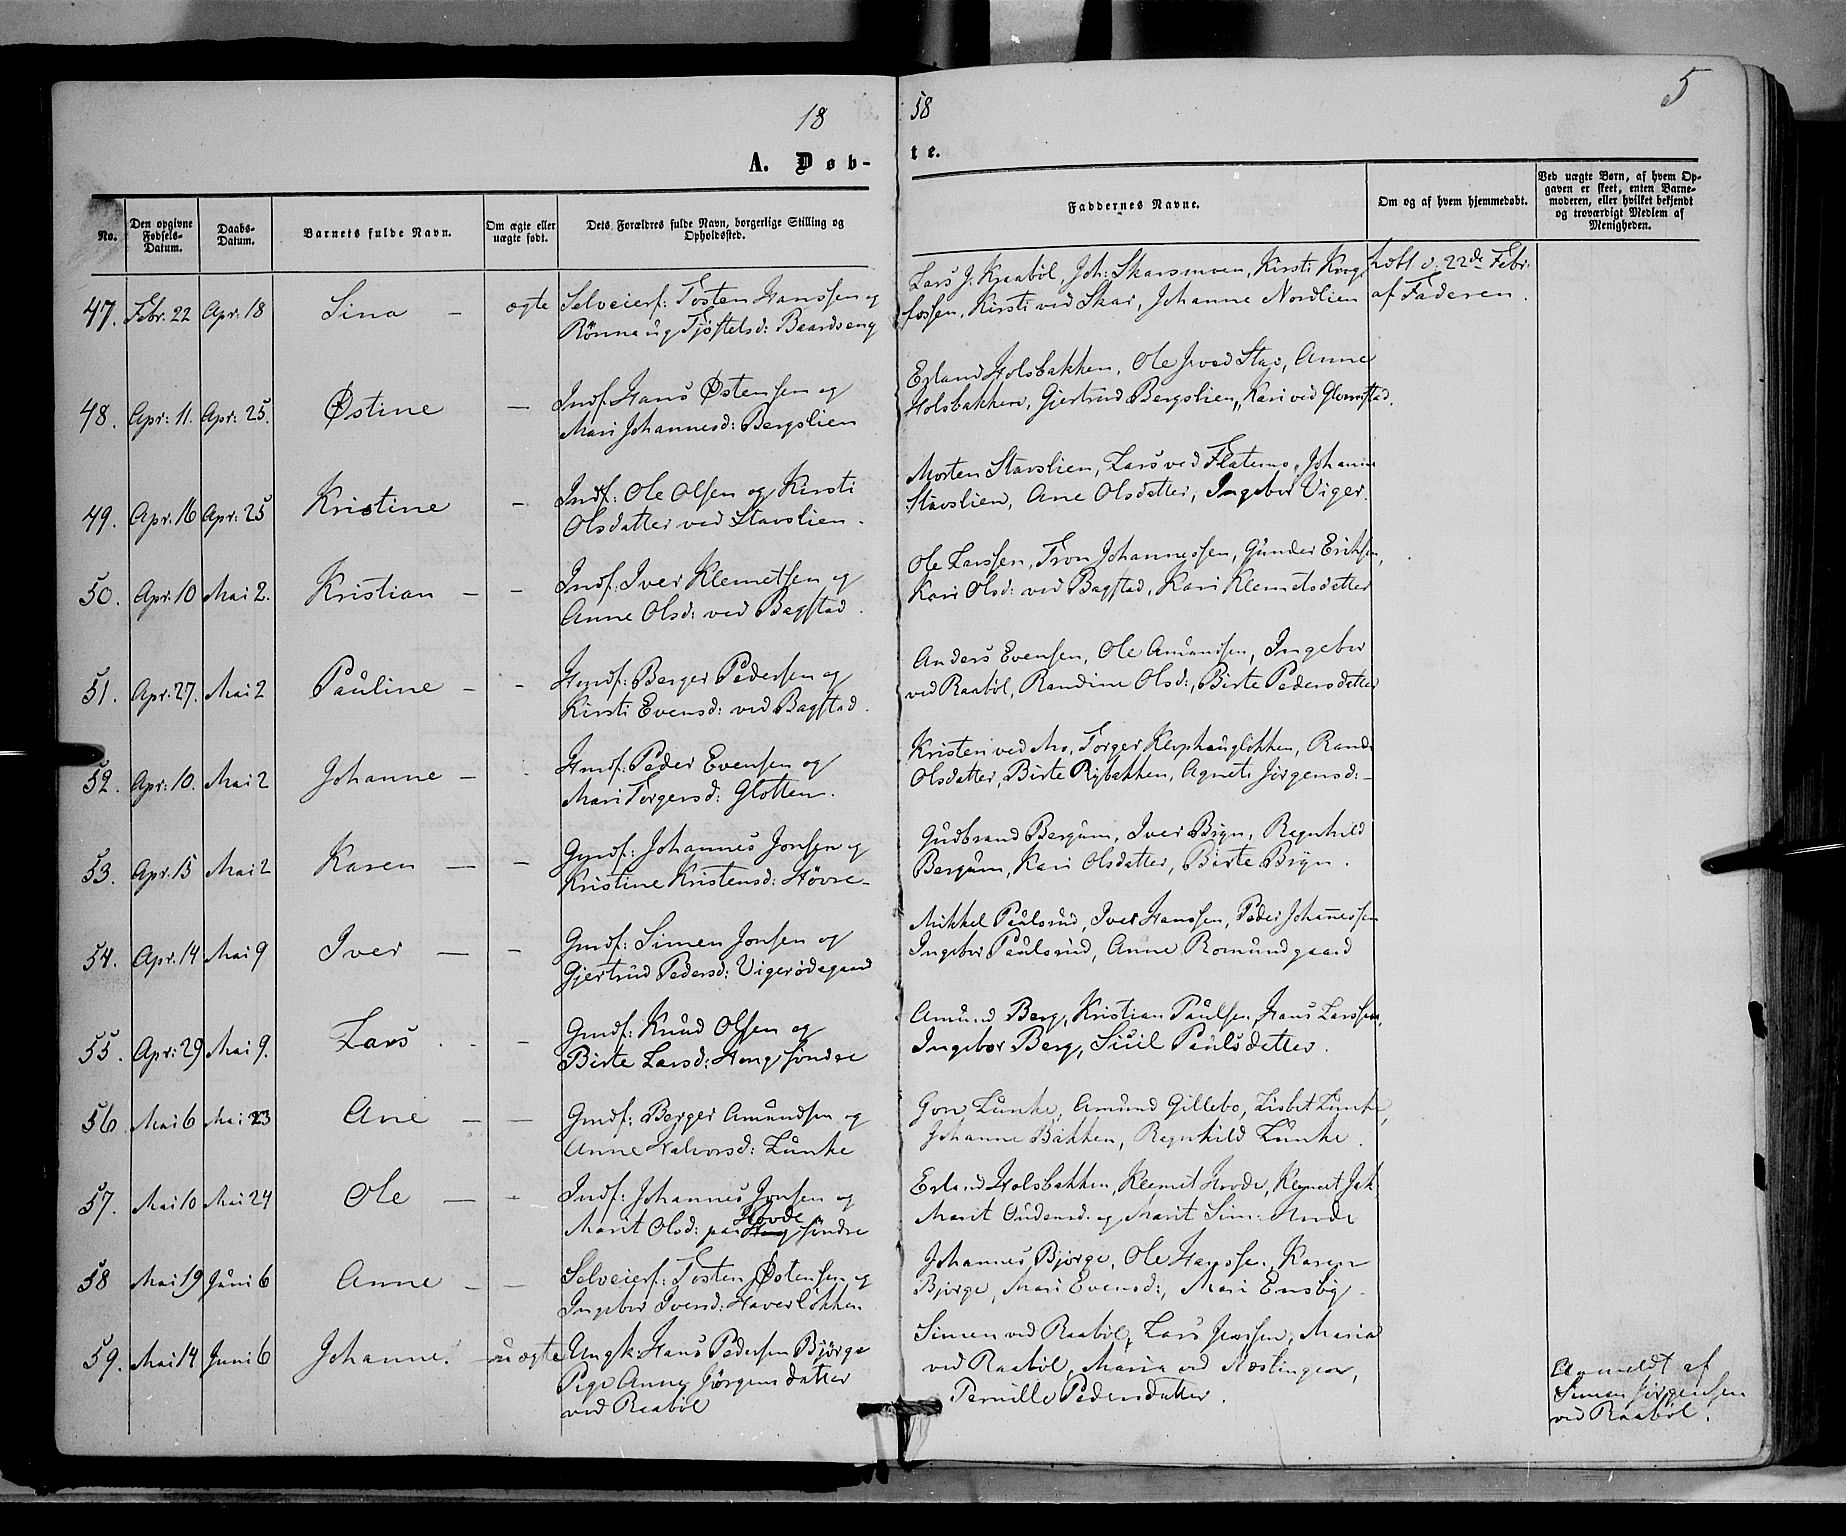 18 58
5
A. Døb-
te.
No.
Den opgivne Fødsels-Datum.
Daabs-Datum.
Barnets fulde Navn.
Om ægte eller uægte født.
Dets Forældres fulde Navn, borgerlige Stilling og Opholdssted.
Faddernes Navne.
Om og af hvem hjemmedøbt.
Ved uægte Børn, af hvem Op-
gaven er skeet, enten Barne-
moderen, eller hvilket bekjendt
og troværdigt Medlem af
Menigheden.
47. Febr. 22 Apr. 18 Sina – ægte
Selveierf: Tosten Hanssen og
Rönnaug Tjöstelsd: Baardseng
Lars J. Kraaböl, Joh: Skarsmoen, Kirsti
fossen, Kirsti ved Skar, Johanne Nordlien
d. 22de Febr.
af Faderen.
48. Apr: 11. Apr: 25. Østine –
Indf. Hans Østensen og
Mari Johannesd: Bergslien
Erland Holsbakken, Ole ved Stav, Anne
Holsbakken, Gjertrud Bergslien, Kari ved Glomstad.
49. Apr: 16 Apr: 25 Kristine –
Indf: Ole Olsen og Kirsti
Olsdatter ved Stavslien.
Morten Stavslien, Lars ved Flatemo, Johanne
Stavslien, Ane Olsdatter, Ingebor Viger.
50. Apr: 10 Mai 2. Kristian – –
Indf: Iver Klemetsen og
Anne Olsd: ved Bagstad.
Ole Larssen, Tron Johannessen, Gunder Eriksen,
Kari Olsd: ved Bagstad, Kari Klemetsdatter
51. Apr: 27. Mai 2 Pauline – –
Hmdf: Berger Pedersen og
Kirsti Evensd: ved Bagstad.
Anders Evensen, Ole Amundsen, Ingebor
ved Raaböl, Randine Olsd:, Birte Pedersdatter
52. Apr: 10. Mai 2 Johanne –
Hmdf: Peder Evensen og
Mari Torgersd: Glotten.
Kristen ved Mo, Torger Klophauglökken, Randi
Olsdatter, Birte Rybakken, Agnete Jörgensd: –
53. Apr: 15 Mai 2 Karen – –
Gmdf: Johannes Jonsen og
Kristine Kristensd: Hövre –
Gudbrand Bergum, Iver Bryn, Regnhild
Bergum, Kari Olsdatter, Birte Bryn.
54. Apr: 14 Mai 9 Iver – –
Gmdf: Simen Jonsen og
Gjertrud Pedersd: Vigerödegaard
Mikkel Paulsrud, Iver Hanssen, Peder Johannessen
Ingebor Paulsrud, Anne Romundgaard
55. Apr: 29 Mai 9. Lars –
Gmdf: Knud Olsen og
Birte Larsd: Hong söndre
Amund Berg, Kristian Paulsen, Hans Larssen,
Ingebor Berg, Siiil Paulsdatter.
56 Mai 6 Mai 23 Ane – –
Gmdf: Berger Amundsen og
Anne Halvorsd: Lunke
Gon Lunke, Amund Gillebo, Lisbet Lunke,
Johanne Bakken, Regnhild Lunke.
57. Mai 10 Mai 24 Ole – –
Indf: Johannes Jonsen og
Hovde
Marit Olsd: paa Hong söndre
Erland Holsbakken, Klemet Hovde, Klemet Jak.
Marit Oudensd: og Marit Sim: Hovde
58 Mai 19 Juni 6 Anne – –
Selveierf: Tosten Østensen og
Ingebor Iversd: Haverlökken.
Johannes Bjørge, Ole Hanssen, Karen
Bjørge, Mari Evensd:, Mari Ensby.
59. Mai 14 Juni 6 Johanne. – uægte
Ungk: Hans Pedersen Bjørge
Pige Anne Jørgensdatter
ved Raaböl
Simen ved Raaböl, Lars Jenssen, Maria
ved Raaböl, Maria ved Næslingen,
Pernille Pedersdatter.
Anmeldt af
Simen Jörgensen
ved Raaböl.